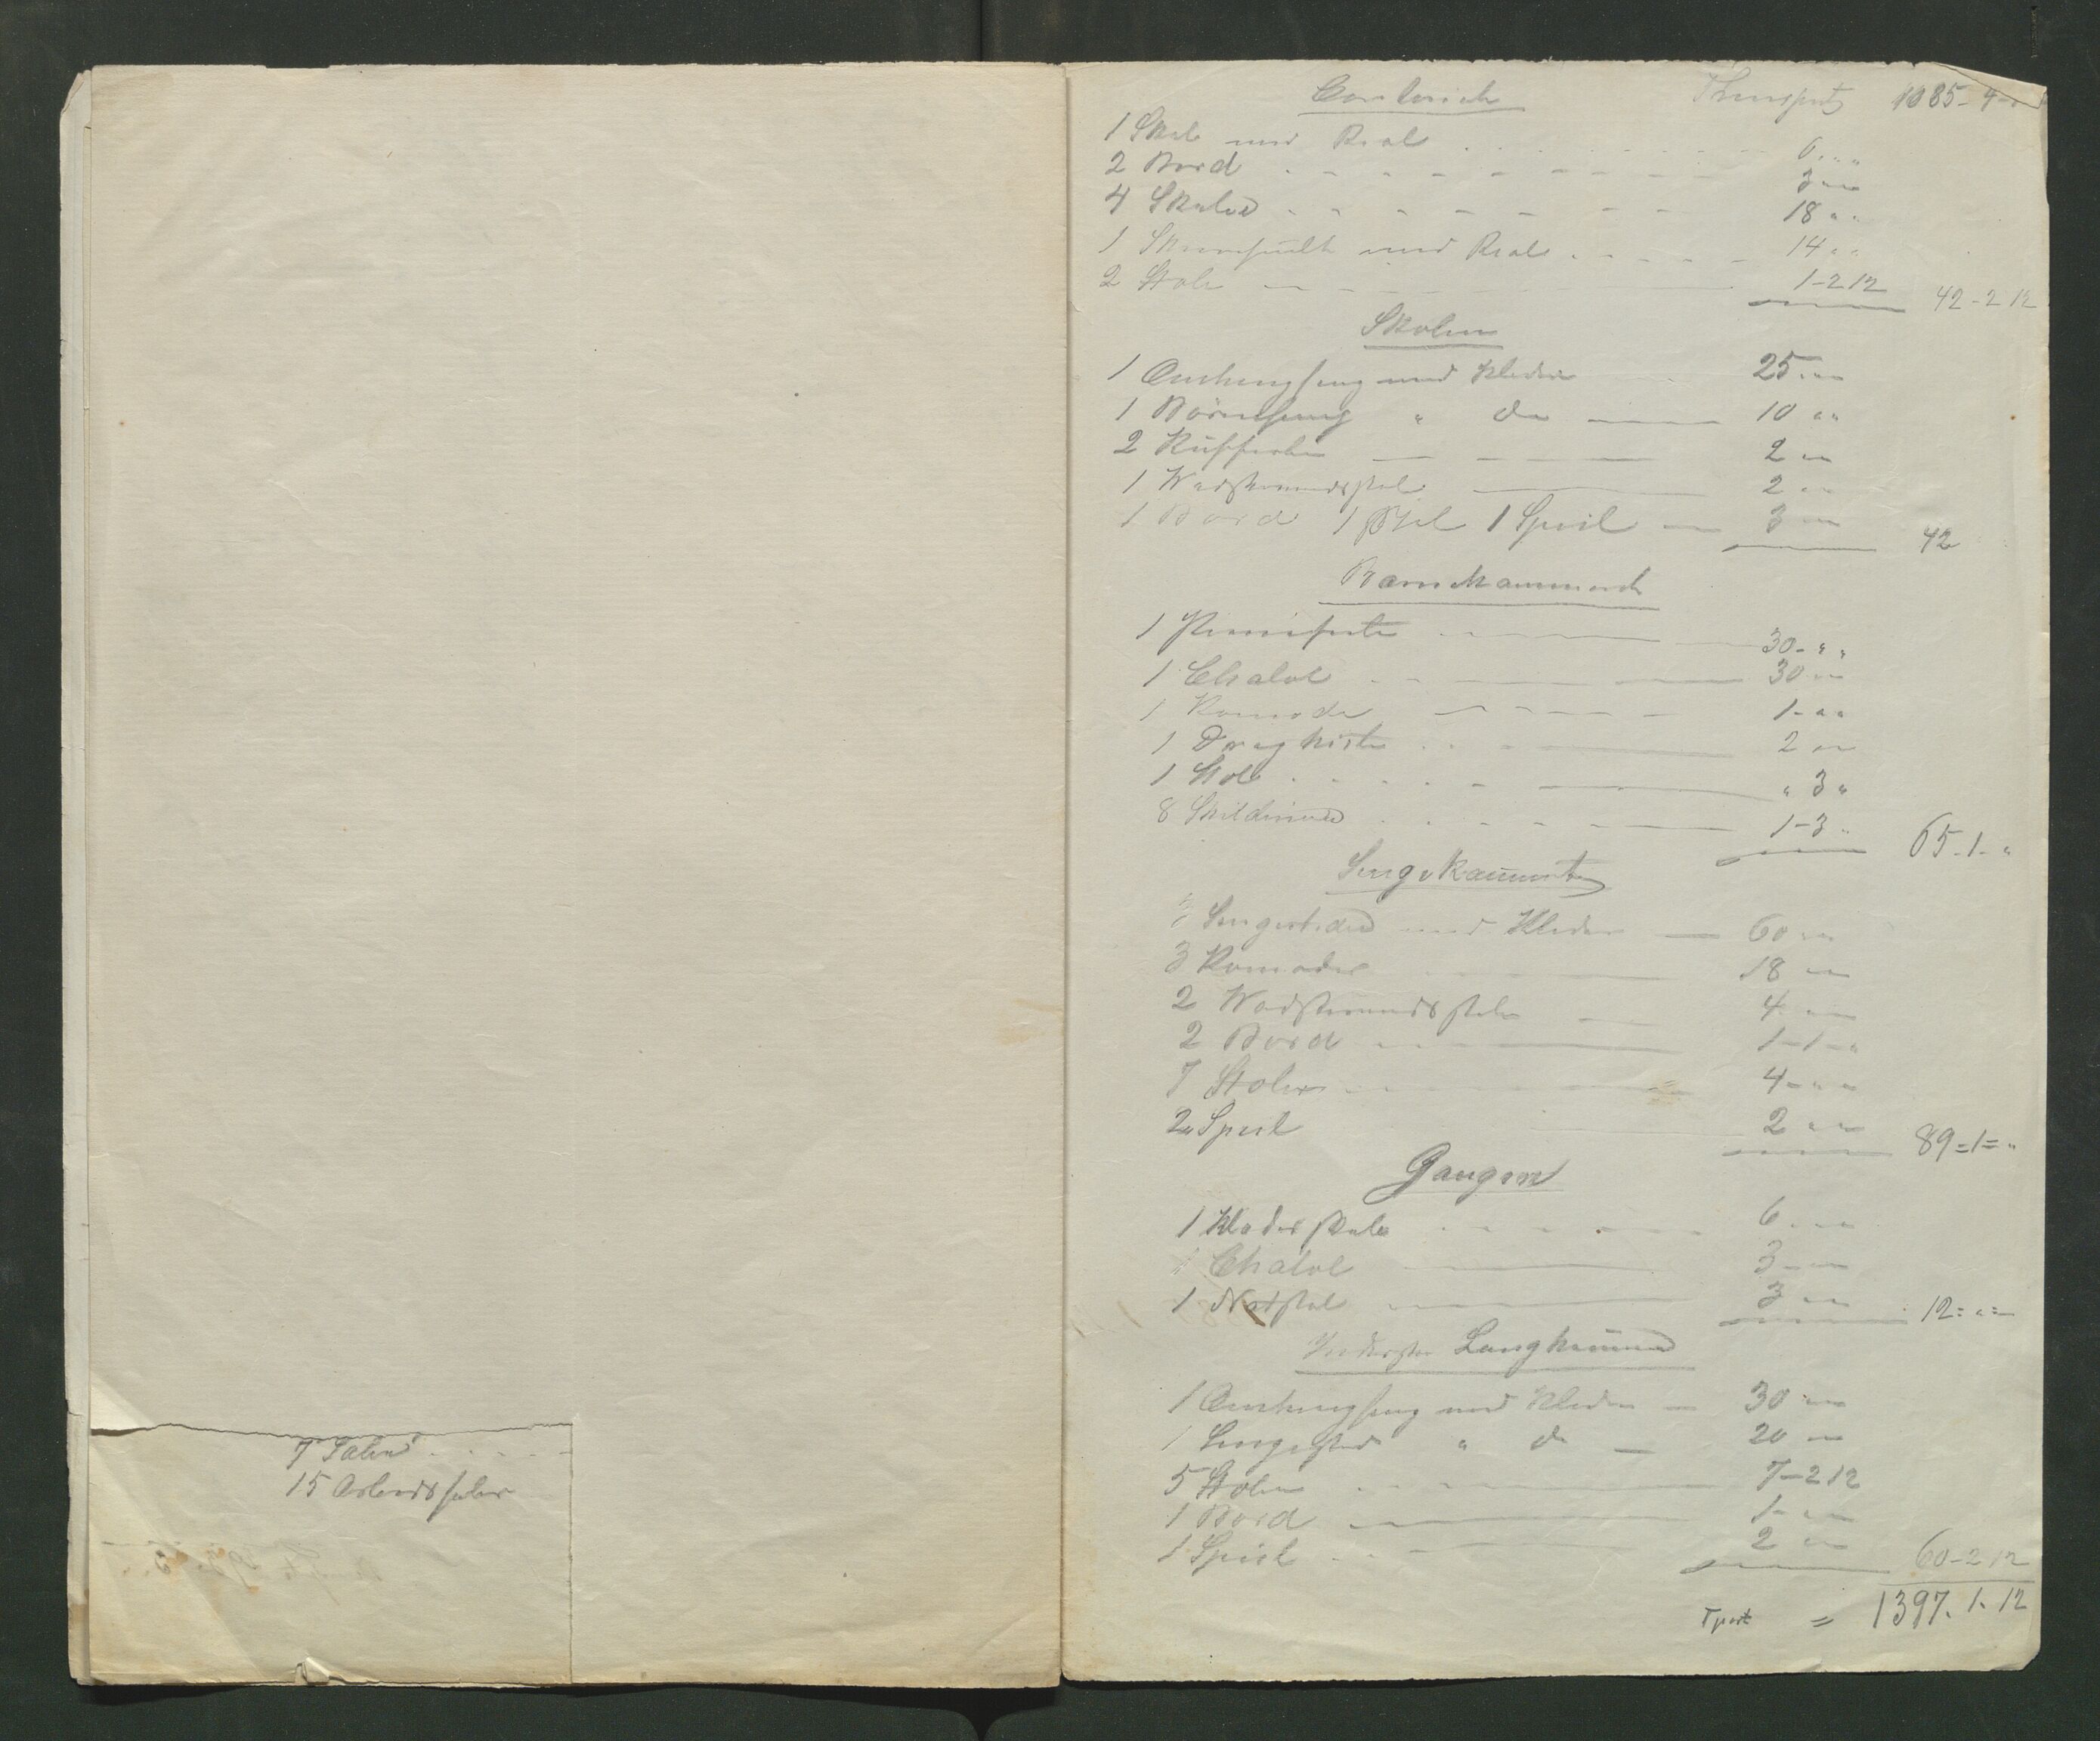 7 Saler . . . .
15 Arbeidsseler
Contoriet Transport 1085-4-
1 Skab med Real . . . 6 " "
2 Bord - - - - 3 " "
4 Skabe - - - - 18 " "
1 med Real - - - 14 " "
2 Stole - - - 1-2 12 42-2 12
Skolen
1 Omhengseng med Kleder 25 " "
1 Börneseng " do 10 " "
2 Kufferter 2 " "
1 2 " "
1 Bord 1 1 Speil 3 " " 42
Barnekammeret
1 30 - " "
1 Chatol 30 " "
1 Komode 1 - " "
1 Dragkiste 2 " "
1 Stol " 3 "
8 Skilderier 1-3 " 65-1-"
Sengekammeret
Sengesteder med Kleder 60 " "
3 Komoder 18 " "
2 4 " "
2 Bord 1-1-"
7 Stoler 4 - " "
2 Speil 2 " " 89=1="
Gangen
1 Klædeskab 6 " "
1 Chatol 3 " "
1 3 " " 12 = " =
1 Omhengseng med Kleder 30 " "
1 Sengested " do 20 " "
5 Stoler 7-2 12
1 Bord 1 - " "
1 Speil 2 " " 60-2 12
Tport = 1397. 1. 12